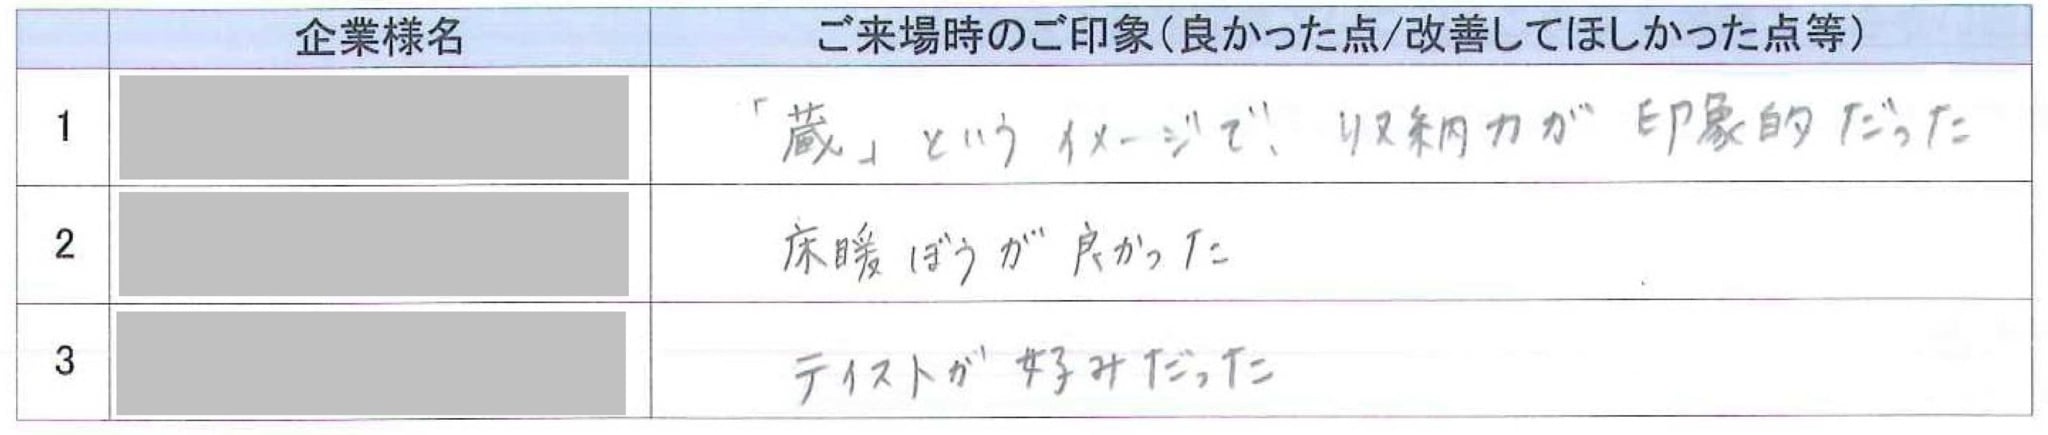 企業様名 ご来場時のご印象(良かった点/改善してほしかった点等)
1 「蔵」というイメージで、収納力が印象的だった
2 床暖ぼうが良かった
3 テイストが好みだった